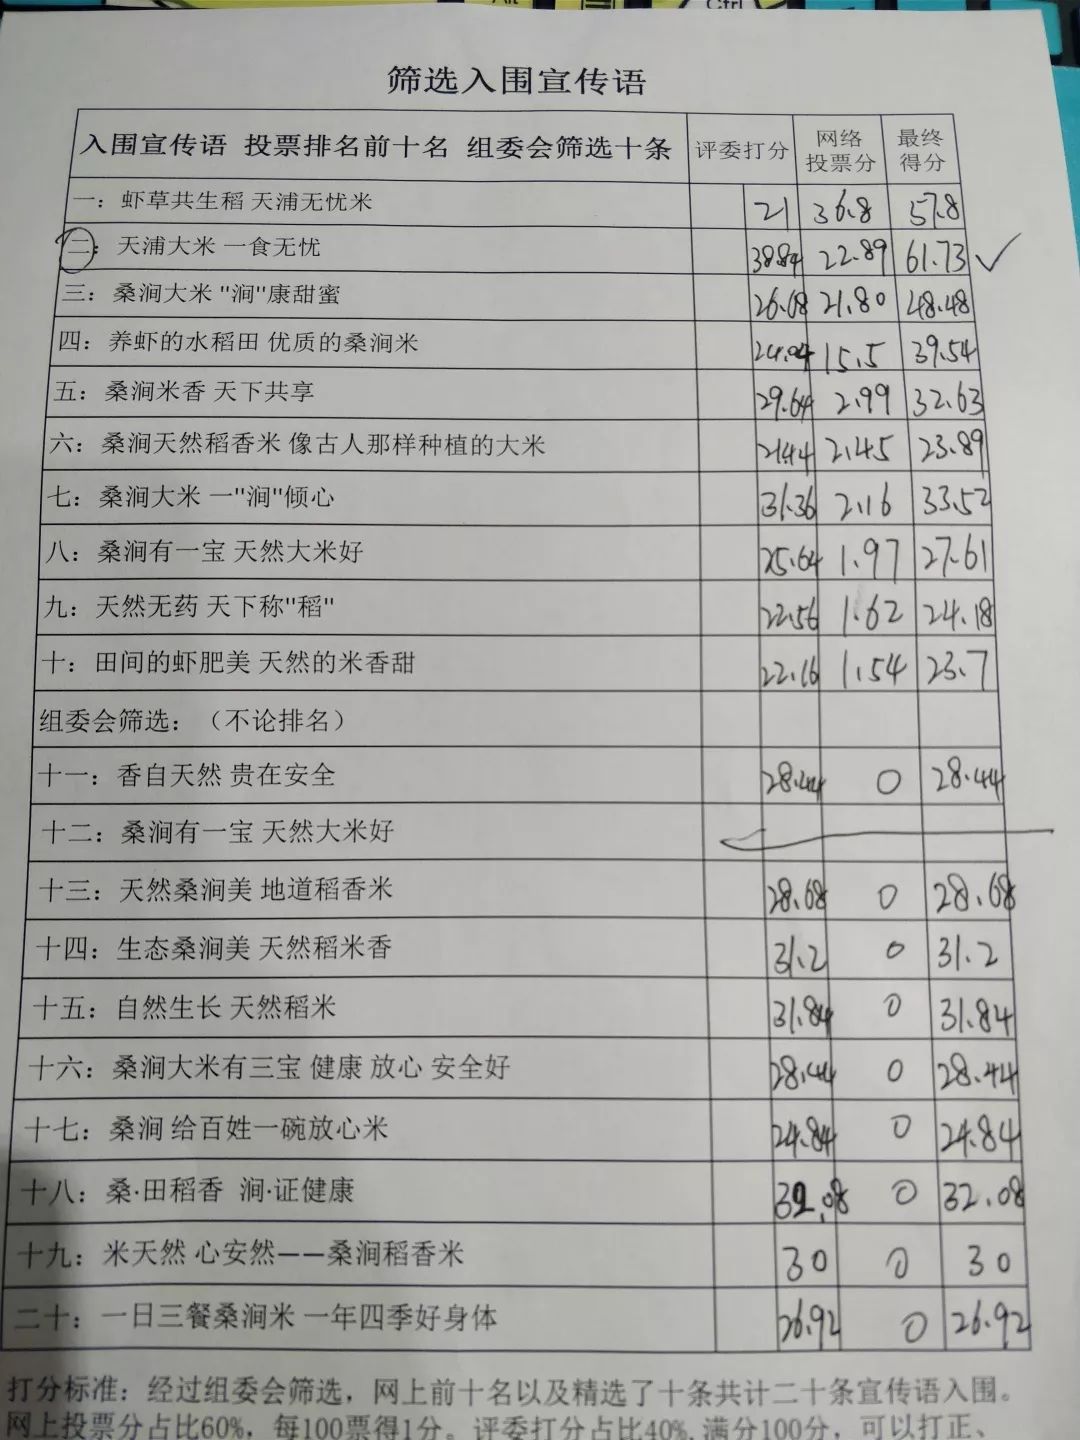 Alt
Ctrl
筛选入围宣传语
入围宣传语 投票排名前十名 组委会筛选十条 评委打分 网络投票分 最终得分
一：虾草共生稻 天浦无忧米 21 36.8 57.8
二：天浦大米 一食无忧 38.84 22.89 61.73 ✓
三：桑涧大米 "涧"康甜蜜 26.68 21.80 48.48
四：养虾的水稻田 优质的桑涧米 24.04 15.5 39.54
五：桑涧米香 天下共享 29.64 2.99 32.63
六：桑涧天然稻香米 像古人那样种植的大米 21.44 2.45 23.89
七：桑涧大米 一"涧"倾心 31.36 2.16 33.52
八：桑涧有一宝 天然大米好 25.64 1.97 27.61
九：天然无药 天下称"稻" 22.56 1.62 24.18
十：田间的虾肥美 天然的米香甜 22.16 1.54 23.7
组委会筛选：（不论排名）
十一：香自天然 贵在安全 28.44 0 28.44
十二：桑涧有一宝 天然大米好
十三：天然桑涧美 地道稻香米 28.68 0 28.68
十四：生态桑涧美 天然稻米香 31.2 0 31.2
十五：自然生长 天然稻米 31.84 0 31.84
十六：桑涧大米有三宝 健康 放心 安全好 28.44 0 28.44
十七：桑涧 给百姓一碗放心米 24.84 0 24.84
十八：桑·田稻香 涧·证健康 32.08 0 32.08
十九：米天然 心安然——桑涧稻香米 30 0 30
二十：一日三餐桑涧米 一年四季好身体 26.92 0 26.92
打分标准：经过组委会筛选，网上前十名以及精选了十条共计二十条宣传语入围。
网上投票分占比60%，每100票得1分。评委打分占比40%,满分100分，可以打正、